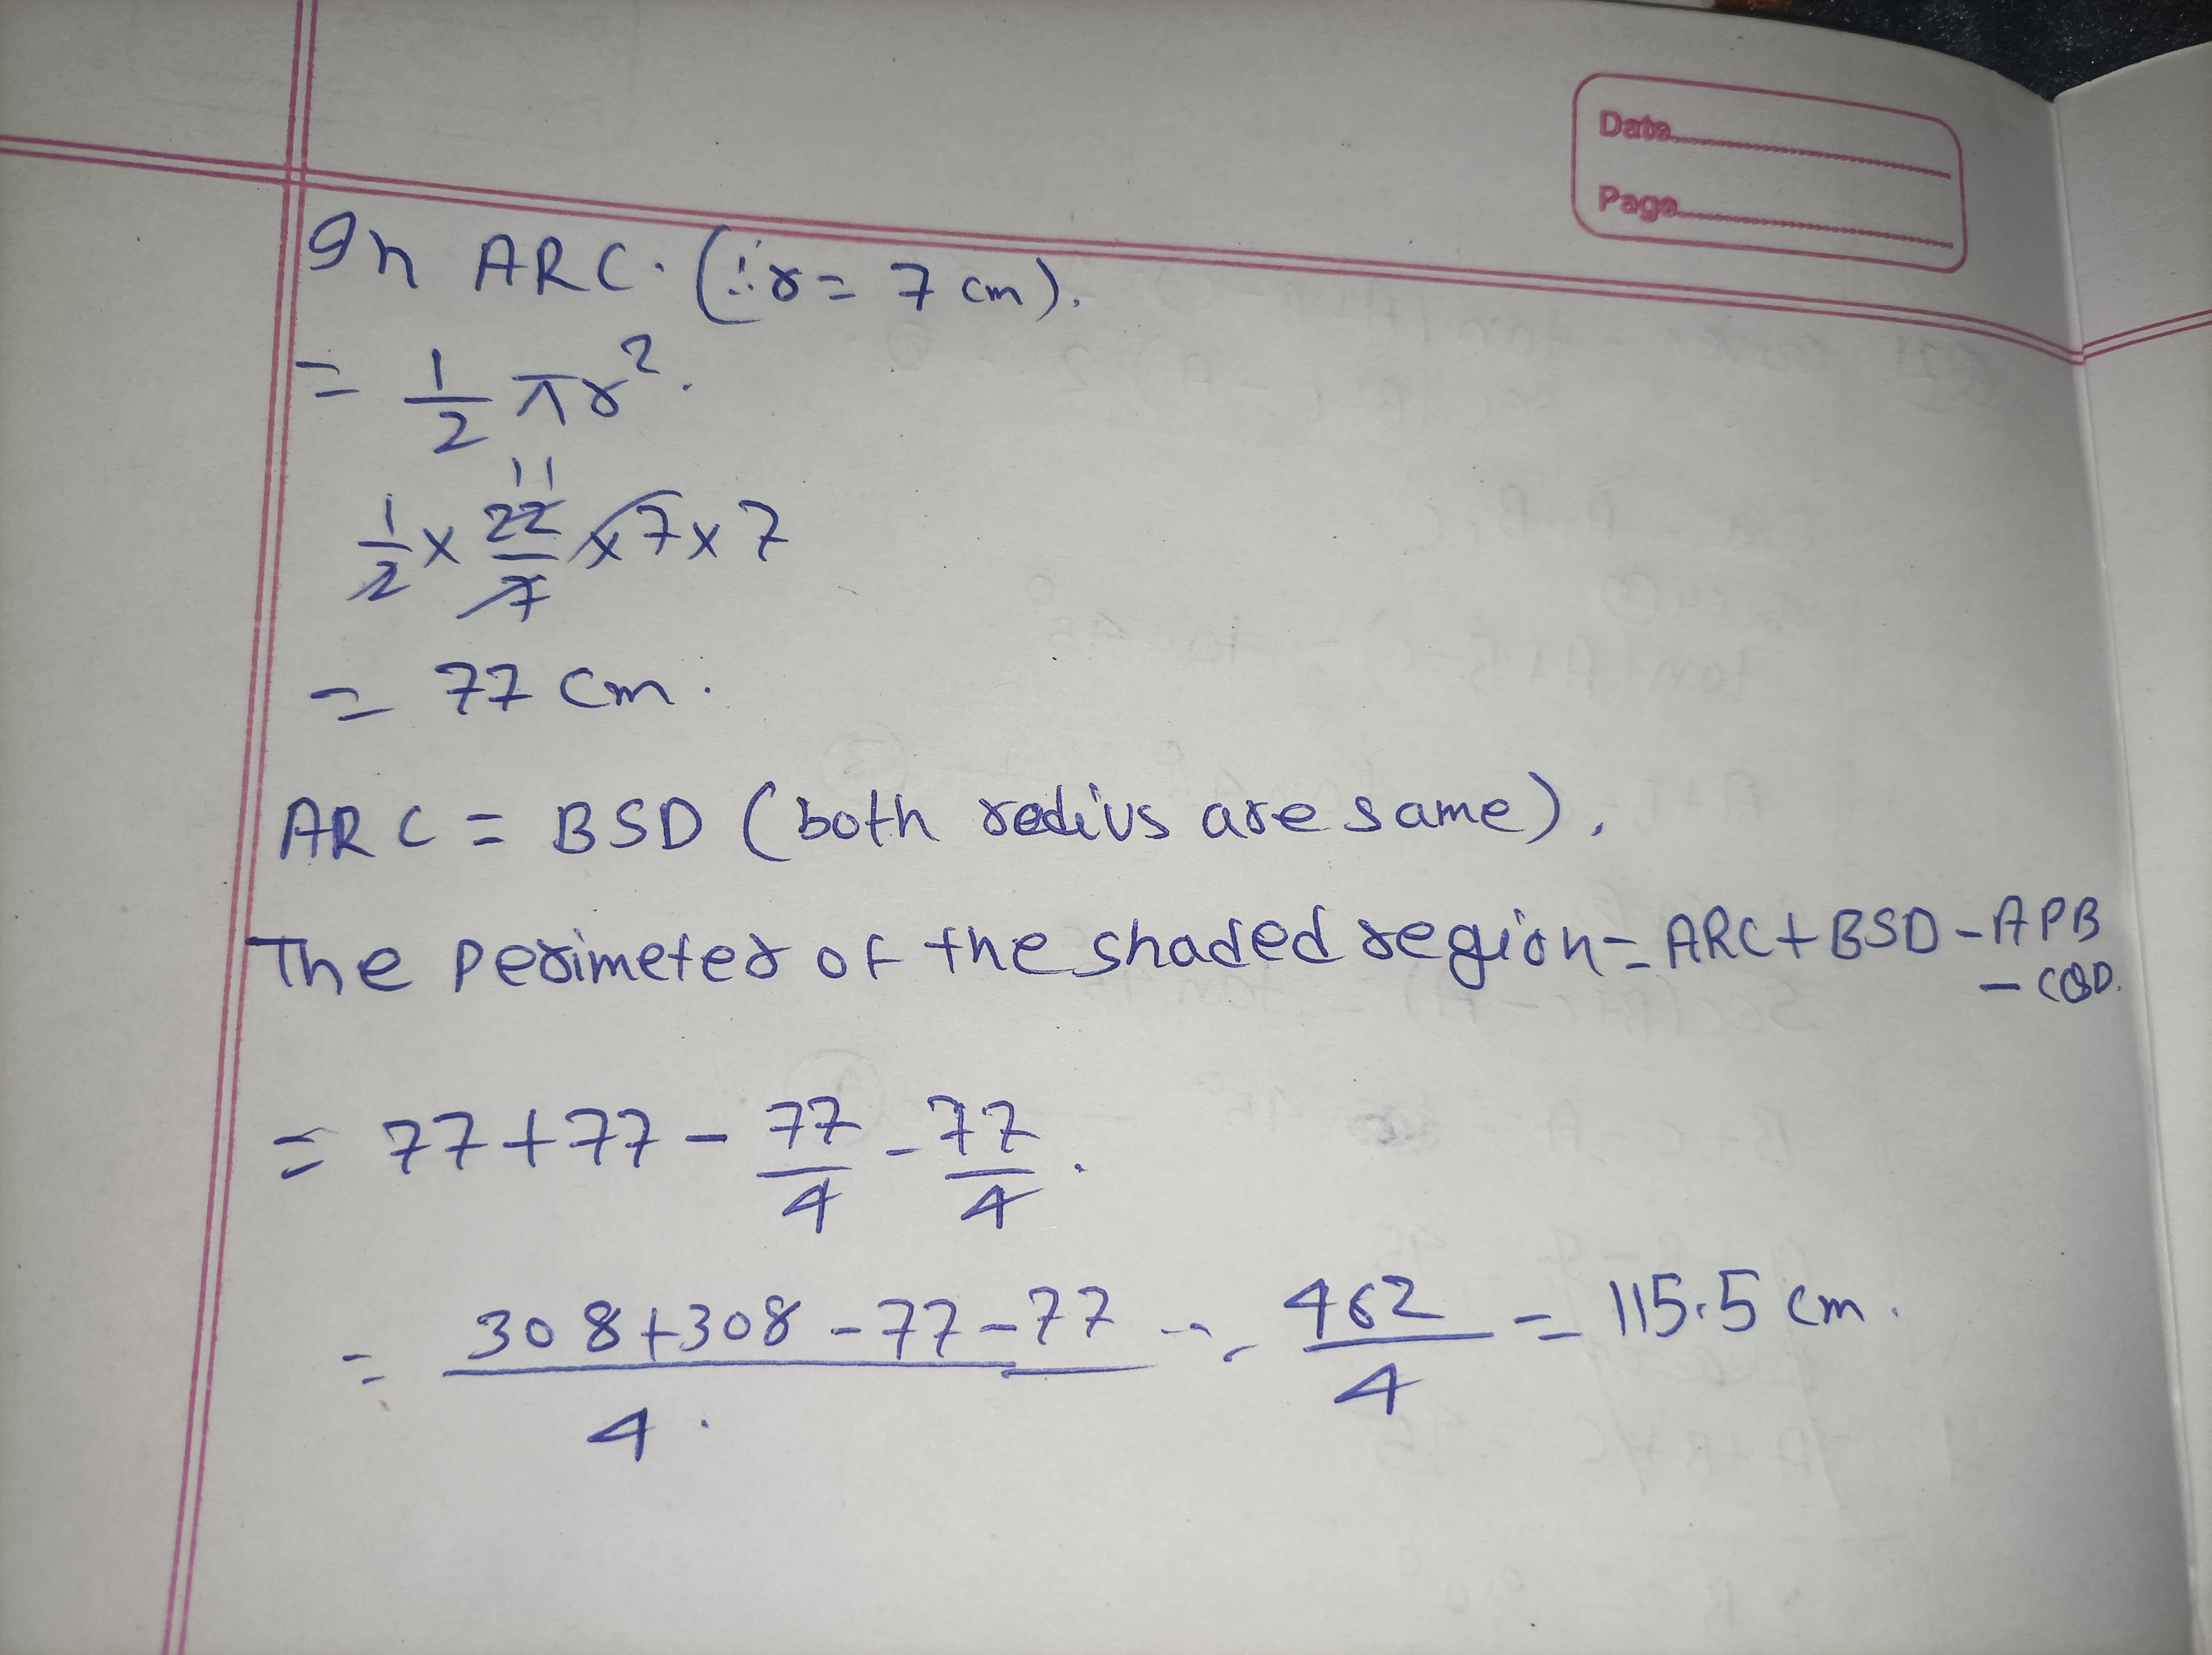 Date
Page
In ARC. (∵ r = 7 cm).
= 1/2 πr².
1/2 × 22/7 × 7 × 7
11
= 77 cm.
ARC = BSD (both redius are same).
The perimeter of the shaded region = ARC + BSD - APB
- CQD.
= 77 + 77 - 77/4 - 77/4.
= 308+308-77-77/4. = 462/4 = 115.5 cm.